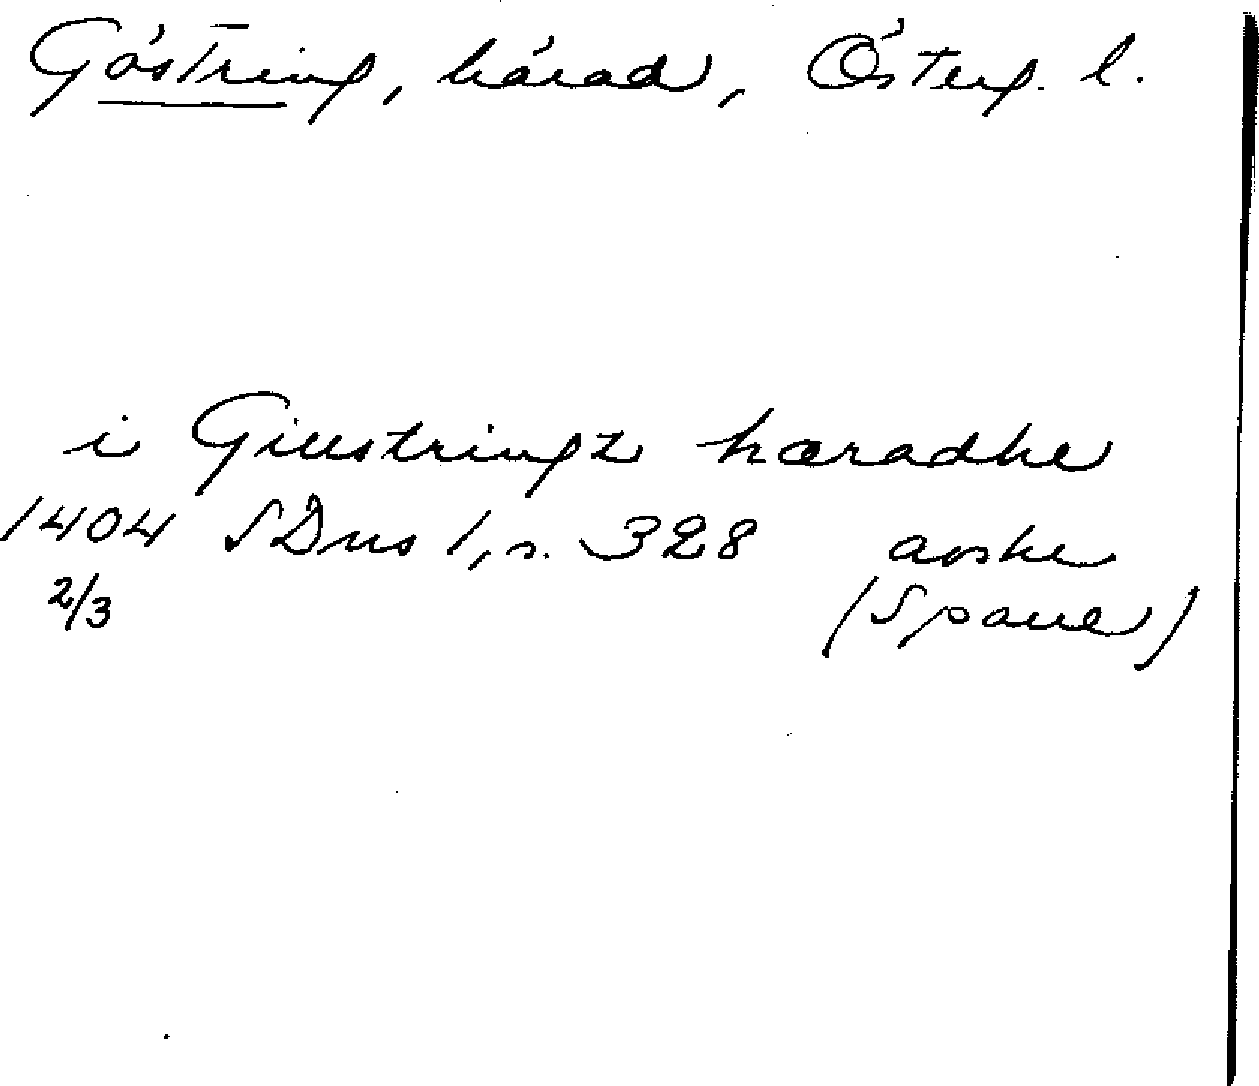 Göstring, härad, Österg. l.
i Giustringz hæradhe
1404 SDns 1, s. 328 avskr
2/3 (Spaue)